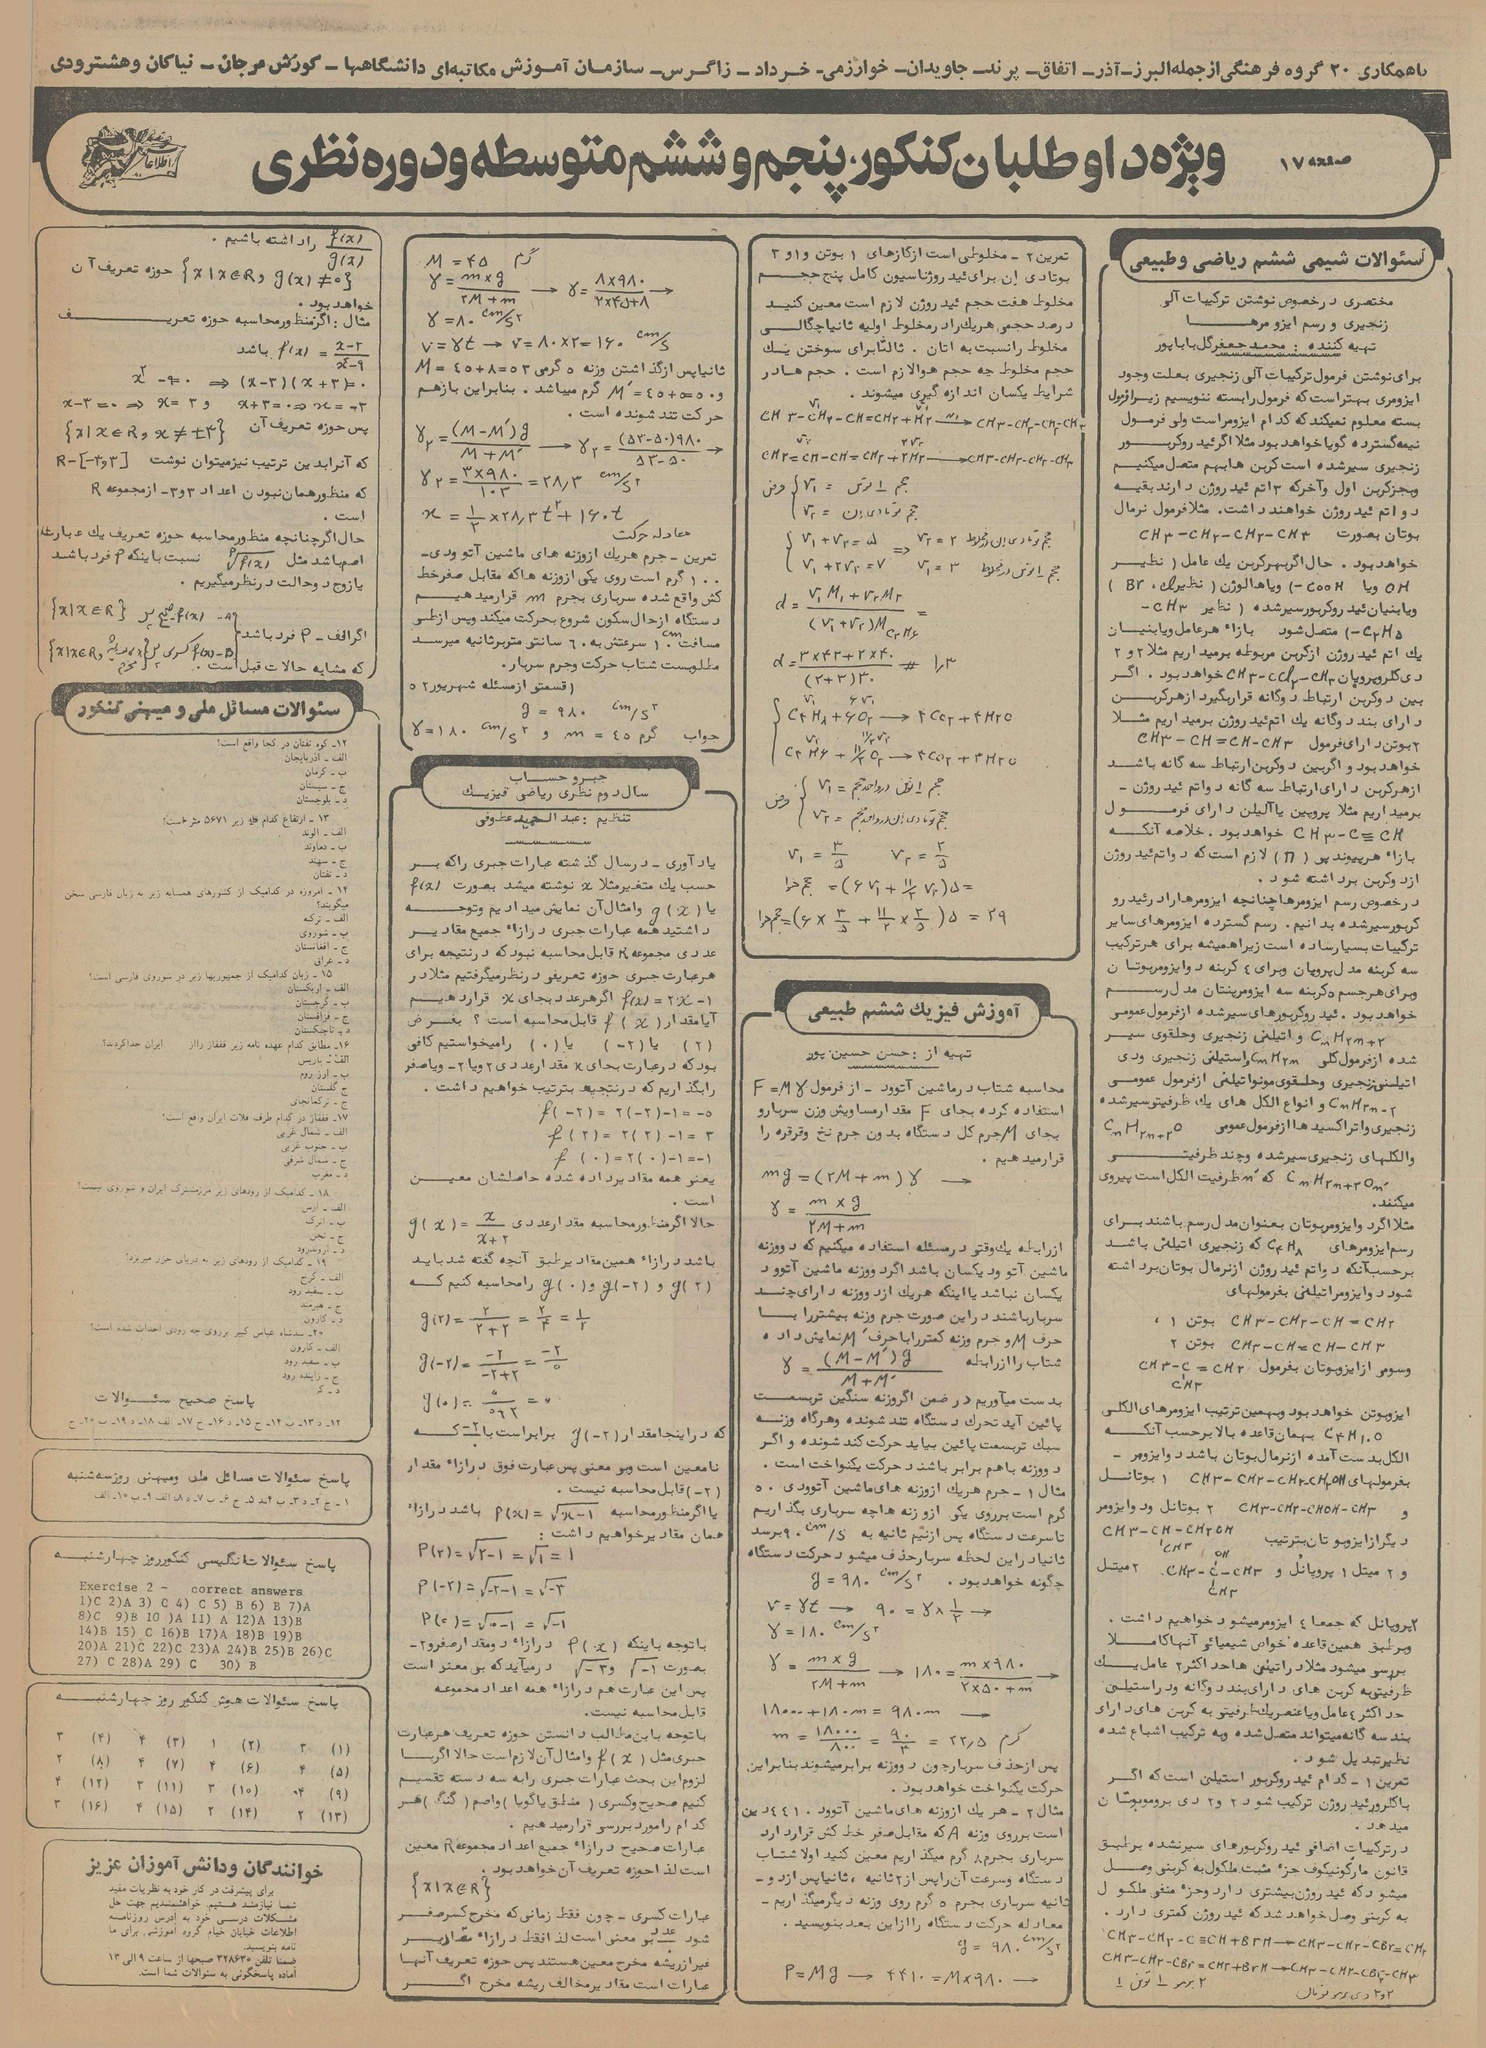 باهمکاری ۲۰ گروه فرهنگی ازجمله البرز-آذر- اتفاق- پرند- جاویدان- خوارزمی- خرداد- زاگرس- سازمان آموزش مکاتبه‌ای دانشگاهها- کورش مرجان- نیاکان وهشترودی
صفحه ۱۷
ویژه داوطلبان کنکور، پنجم و ششم متوسطه و دوره نظری
اطلاعات
سئوالات شیمی ششم ریاضی وطبیعی
مختصری درخصوص نوشتن ترکیبات آلی
زنجیری و رسم ایزومرها
تهیه کننده : محمدجعفرگل باباپور
برای نوشتن فرمول ترکیبات آلی زنجیری بعلت وجود
ایزومری بهتراست که فرمول رابسته ننویسیم زیرافرمول
بسته معلوم نمیکندکه کدام ایزومراست ولی فرمول
نیمه گسترده گویاخواهدبود مثلا اگرئیدروکربور
زنجیری سیرشده است کربن هابهم متصل میکنیم
وبجزکربن اول وآخرکه ۳ اتم ئیدروژن دارندبقیه
دواتم ئیدروژن خواهندداشت. مثلافرمول نرمال
بوتان بصورت CH۳-CH۲-CH۲-CH۳
خواهدبود . حال اگربهرکربن یک عامل ( نظیر
OH ویا COOH-) ویاهالوژن (نظیر Cl، Br )
ویابنیان ئیدروکربورسیرشده ( نظیر CH۳-
C۲H۵-) متصل شود بازاء هرعامل ویابنیان
یک اتم ئیدروژن ازکربن مربوطه برمیداریم مثلا ۲ و ۲
دی کلروپروپان CH۳-CCl۲-CH۳ خواهدبود . اگر
بین دوکربن ارتباط دوگانه قراربگیرد ازهرکربن
دارای بند دوگانه یک اتم ئیدروژن برمیداریم مثلا
۲بوتن دارای فرمول CH۳-CH=CH-CH۳
خواهدبود و اگربین دوکربن ارتباط سه گانه باشد
ازهرکربن دارای ارتباط سه گانه دواتم ئیدروژن -
برمیداریم مثلا پروپین یاآلیلن دارای فرمول
CH۳-C≡CH خواهدبود . خلاصه آنکه
بازاء هرپیوند پی (π) لازم است که دواتم ئیدروژن
ازدوکربن برداشته شود .
درخصوص رسم ایزومرهاچنانچه ایزومرهارادرئیدرو
کربورسیرشده بدانیم . رسم گسترده ایزومرهای سایر
ترکیبات بسیارساده است زیراهمیشه برای هرترکیب
سه کربنه مدل پروپان وبرای ۴ کربنه دوایزومربوتان
وبرای هرجسم ۵کربنه سه ایزومرپنتان مدل رسم
خواهدبود . ئیدروکربورهای سیرشده ازفرمول عمومی
CnH۲n+۲ و اتیلنی زنجیری وحلقوی سیر
شده ازفرمول کلی CnH۲n واستیلنی زنجیری ودی
اتیلنی زنجیری وحلقوی مونواتیلنی ازفرمول عمومی
CnH۲n-۲ و انواع الکل های یک ظرفیتی سیرشده
زنجیری واتراکسیدها ازفرمول عمومی CnH۲n+۲O
والکلهای زنجیری سیرشده وچند ظرفیتی
CnH۲n+۲On' که n' ظرفیت الکل است پیروی
میکنند.
مثلا اگردوایزومربوتان بعنوان مدل رسم باشند برای
رسم ایزومرهای C۴H۸ که زنجیری اتیلنی باشد
برحسب آنکه دواتم ئیدروژن ازنرمال بوتان برداشته
شود دوایزومراتیلنی بفرمولهای
CH۳-CH۲-CH=CH۲ بوتن ۱ ،
CH۳-CH=CH-CH۳ بوتن ۲
وسومی ازایزوبوتان بفرمول CH۳-C=CH۲
CH۳
ایزوبوتن خواهدبود وبهمین ترتیب ایزومرهای الکلی
C۴H۱۰O بهمان قاعده بالابرحسب آنکه
الکل بدست آمده ازنرمال بوتان باشد دوایزومر -
بفرمولهای CH۳-CH۲-CH۲-CH۲OH ۱ بوتانل
و CH۳-CH۲-CHOH-CH۳ ۲ بوتانل ودوایزومر
دیگرازایزوبوتان بترتیب CH۳-CH-CH۲OH
CH۳
و ۲ میتل ۱ پروپانل و CH۳-C-CH۳ ۲ میتل
OH
CH۳
۲پروپانل که جمعا ۴ ایزومرمیشود خواهیم داشت .
وبرطبق همین قاعده خواص شیمیائی آنهاکاملا
بررسی میشود مثلادراتیلنی هاحداکثر۲ عامل یک
ظرفیتی به کربن های دارای بند دوگانه ودراستیلنی
حداکثر ۴عامل ویاعنصریک ظرفیتی به کربن های دارای
بند سه گانه میتواند متصل شده وبه ترکیب اشباع شده
نظیرتبدیل شود .
تمرین ۱ - کدام ئیدروکربور استیلن است که اگر
باکلرورئیدروژن ترکیب شود ۲ و ۲ دی بروموبوتان
میدهد .
درترکیبات اضافی ئیدروکربورهای سیرنشده برطبق
قانون مارکونیکوف جزء مثبت ملکول به کربنی وصل
میشودکه ئیدروژن بیشتری دارد وجزء منفی ملکول
به کربنی وصل خواهدشدکه ئیدروژن کمتری دارد .
CH۳-CH۲-C≡CH+BrH→CH۳-CH۲-CBr=CH۲
CH۳-CH۲-CBr=CH۲+BrH→CH۳-CH۲-CBr۲-CH۳
۲ برمو ۱ بوتن ۱
۲و۲ دی برمو بوتان
تمرین ۲ - مخلوطی است ازگازهای ۱ بوتن و۱ و ۳
بوتادی ان برای ئیدروژناسیون کامل پنج حجم
مخلوط هفت حجم ئیدروژن لازم است معین کنید
درصد حجمی هریک رادرمخلوط اولیه ثانیاچگالی
مخلوط رانسبت به اتان . ثالثابرای سوختن یک
حجم مخلوط چه حجم هوالازم است . حجم هادر
شرایط یکسان اندازه گیری میشوند.
CH۳-CH۲-CH=CH۲+H۲ →Ni CH۳-CH۲-CH۲-CH۳
CH۲=CH-CH=CH۲+۲H۲ → CH۳-CH۲-CH۲-CH۳
فرض { حجم ۱ بوتن = V۱
حجم بوتادی ان = V۲
{ V۱+V۲=۵ ⇒ V۲=۲ حجم بوتادی ان درمخلوط
V۱+۲V۲=۷ V۱=۳ حجم ۱ بوتن درمخلوط
d = (V۱M۱+V۲M۲)/((V۱+V۲)M C۲H۶) =
{ C۴H۸+۶O۲ → ۴CO۲+۴H۲O
C۴H۶+۱۱/۲O۲ → ۴CO۲+۳H۲O
فرض { حجم ۱ بوتن درواحدحجم = V۱
حجم بوتادی ان درواحدحجم = V۲
V۱=۳/۵ V۲=۲/۵
حجم هوا =(۶V۱+۱۱/۲V۲)۵=
حجم هوا=(۶×۳/۵+۱۱/۲×۲/۵)۵=۲۹
آموزش فیزیک ششم طبیعی
تهیه از : حسن حسین پور
محاسبه شتاب درماشین آتوود - از فرمول F=Mγ
استفاده کرده بجای F مقدارمساویش وزن سربارو
بجای M جرم کل دستگاه بدون جرم نخ وقرقره را
قرارمیدهیم .
mg=(۲M+m)γ →
γ = m×g/(۲M+m)
ازرابطه یک وقتی درمسئله استفاده میکنیم که دووزنه
ماشین آتوود یکسان باشد اگردووزنه ماشین آتوود
یکسان نباشد یااینکه هریک ازدووزنه دارای چند
سربارباشند دراین صورت جرم وزنه بیشتررابا
حرف M و جرم وزنه کمتررابا حرف M' نمایش داده
شتاب راازرابطه γ = (M-M')g/(M+M')
بدست میآوریم درضمن اگروزنه سنگین تربسمت
پائین آید تحرک دستگاه تندشونده وهرگاه وزنه
سبک تربسمت پائین بیاید حرکت کندشونده و اگر
دووزنه باهم برابر باشند حرکت یکنواخت است .
مثال ۱ - جرم هریک ازوزنه های ماشین آتوودی ۵۰
گرم است برروی یکی ازوزنه هاچه سرباری بگذاریم
تاسرعت دستگاه پس ازنیم ثانیه به ۹۰ cm/s برسد
ثانیادراین لحظه سربارحذف میشود حرکت دستگاه
چگونه خواهدبود . g=۹۸۰ cm/s۲
v=γt → ۹۰=γ×۱/۲ →
γ=۱۸۰ cm/s۲
γ = m×g/(۲M+m) → ۱۸۰ = m×۹۸۰/(۲×۵۰+m) →
۱۸۰۰۰+۱۸۰m=۹۸۰m →
m=۱۸۰۰۰/۸۰۰=۹۰/۴=۲۲,۵ گرم
پس ازحذف سربارچون دووزنه برابرمیشوند بنابراین
حرکت یکنواخت خواهدبود .
مثال ۲ - هریک ازوزنه های ماشین آتوود ۴۴۱۰دین
است برروی وزنه A که مقابل صفر خط کش قراردارد
سرباری بجرم ۸ گرم میگذاریم معین کنید اولا شتاب
دستگاه وسرعت آن راپس از۲ثانیه ، ثانیاپس ازدو-
ثانیه سرباری بجرم ۵ گرم روی وزنه دیگرمیگذاریم -
معادله حرکت دستگاه راازاین بعد بنویسید .
g=۹۸۰ cm/s۲
P=Mg → ۴۴۱۰=M×۹۸۰ →
M=۴۵ گرم
γ = m×g/(۲M+m) → γ = ۸×۹۸۰/(۲×۴۵+۸) →
γ=۸۰ cm/s۲
v=γt → v=۸۰×۲=۱۶۰ cm/s
ثانیاپس ازگذاشتن وزنه ۵ گرمی ۵۳=۸+۴۵=M
و ۵۰=۵+۴۵=M' گرم میباشد . بنابراین بازهم
حرکت تندشونده است .
γ۲ = (M-M')g/(M+M') → γ۲ = (۵۳-۵۰)۹۸۰/(۵۳-۵۰) →
γ۲ = ۳×۹۸۰/۱۰۳ = ۲۸,۳ cm/s۲
x=۱/۲×۲۸,۳t۲+۱۶۰t
معادله حرکت
تمرین - جرم هریک ازوزنه های ماشین آتوودی-
۱۰۰گرم است روی یکی ازوزنه هاکه مقابل صفرخط
کش واقع شده سرباری بجرم m قرارمیدهیم
دستگاه ازحال سکون شروع بحرکت میکند وپس ازطی
مسافت ۱۰cm سرعتش به ۶۰ سانتی متربرثانیه میرسد
مطلوبست شتاب حرکت وجرم سربار.
(قسمتی ازمسئله شهریور۵۲
g=۹۸۰ cm/s۲
جواب m=۴۵ گرم و γ=۱۸۰ cm/s۲
جبروحساب
سال دوم نظری ریاضی فیزیک
تنظیم : عبدالحمید عطوفی
یادآوری - درسال گذشته عبارات جبری راکه بر
حسب یک متغیرمثلا x نوشته میشد بصورت f(x)
یا g(x) وامثال آن نمایش میدادیم وتوجه
داشتید همه عبارات جبری درازاء جمیع مقادیر
عددی مجموعه R قابل محاسبه نبودکه درنتیجه برای
هرعبارت جبری حوزه تعریفی درنظرمیگرفتیم مثلادر
f(x)=۲x-۱ اگرهرعددبجای x قراردهیم
آیامقدار f(x) قابل محاسبه است ؟ بفرض
(۲) یا (-۲) یا (۰) رامیخواستیم کافی
بودکه درعبارت بجای x مقدارعددی ۲ ویا ۲- ویاصفر
رابگذاریم که درنتیجه بترتیب خواهیم داشت .
f(-۲)=۲(-۲)-۱=-۵
f(۲)=۲(۲)-۱=۳
f(۰)=۲(۰)-۱=-۱
یعنی همه مقادیرداده شده حاصلشان معین
است .
حالا اگرمنظورمحاسبه مقدارعددی g(x)=x/(x+۲)
باشد درازاء همین مقادیرطبق آنچه گفته شد باید
g(۲) و g(-۲) و g(۰) رامحاسبه کنیم که
g(۲)=۲/(۲+۲)=۲/۴=۱/۲
g(-۲)=-۲/(-۲+۲)=-۲/۰
که دراینجامقدار g(-۲) برابراست با که
نامعین است وبی معنی پس عبارت فوق درازاء مقدار
(-۲) قابل محاسبه نیست .
یااگرمنظورمحاسبه P(x)=√x-۱ باشد درازاء
همان مقادیرخواهیم داشت :
P(۲)=√۲-۱=√۱=۱
P(-۲)=√-۲-۱=√-۳
P(۰)=√۰-۱=√-۱
باتوجه باینکه P(x) درازاء دومقدارصفرو۲-
بصورت √-۱ و √-۳ درمیآیدکه بی معنی است
پس این عبارت هم درازاء همه اعداد مجموعه
قابل محاسبه نیست.
باتوجه باین مطالب دانستن حوزه تعریف هرعبارت
جبری مثل f(x) وامثال آن لازم است حالا اگربا
لزوم این بحث عبارات جبری رابه سه دسته تقسیم
کنیم صحیح وکسری (منطق یاگویا) واصم (گنگ) هر
کدام رامورد بررسی قرارمیدهیم .
عبارات صحیح درازاء جمیع اعدادمجموعه R معین
است لذاحوزه تعریف آن خواهدبود .
{x|x∈R}
عبارات کسری - چون فقط زمانی که مخرج کسرصفر
شود عدد بی معنی است لذافقط درازاء مقادیر
غیرازریشه مخرج معین هستند پس حوزه تعریف آنها
عبارات است مقادیرمخالف ریشه مخرج اگر
f(x)/g(x) راداشته باشیم .
{x|x∈R, g(x)≠۰} حوزه تعریف آن
خواهدبود .
مثال : اگرمنظورمحاسبه حوزه تعریف
f(x)=x-۲/x۲-۹ باشد
x۲-۹=۰ ⇒ (x-۳)(x+۳)=۰
x-۳=۰ ⇒ x=۳ و x+۳=۰ ⇒ x=-۳
پس حوزه تعریف آن {x|x∈R, x≠±۳}
که آنرابدین ترتیب نیزمیتوان نوشت R-[-۳و۳]
که منظورهمان نبودن اعداد ۳و۳- ازمجموعه R
است .
حال اگرچنانچه منظورمحاسبه حوزه تعریف یک عبارت
اصم باشد مثل P√f(x) نسبت باینکه P فردباشد
یازوج دوحالت درنظرمیگیریم .
اگرالف - P فردباشد A- f(x) صحیح پس {x|x∈R}
B- f(x) کسری پس
که مشابه حالات قبل است .
سئوالات مسائل ملی و میهنی کنکور
۱۲- کوه تفتان در کجا واقع است؟
الف - آذربایجان
ب - کرمان
ج - سیستان
د - بلوچستان
۱۳ - ارتفاع کدام قله زیر ۵۶۷۱ متر است؟
الف - الوند
ب - دماوند
ج - سهند
د - تفتان
۱۴ - امروزه در کدامیک از کشورهای همسایه زیر به زبان فارسی سخن
میگویند؟
الف - ترکیه
ب - شوروی
ج - افغانستان
د - عراق
۱۵ - زبان کدامیک از جمهوریهای زیر در شوروی فارسی است؟
الف - ازبکستان
ب - گرجستان
ج - قزاقستان
د - تاجیکستان
۱۶- مطابق کدام عهده نامه زیر قفقاز رااز ایران جداکردند؟
الف - پاریس
ب - ارز روم
ج - گلستان
د - ترکمانچای
۱۷- قفقاز در کدام طرف فلات ایران واقع است؟
الف - شمال غربی
ب - جنوب غربی
ج - شمال شرقی
د - مغرب
۱۸ - کدامیک از رودهای زیر مرزمشترک ایران و شوروی نیست؟
الف - ارس
ب - اترک
ج - تجن
د - اروندرود
۱۹ - کدامیک از رودهای زیر به دریای خزر میریزد؟
الف - کرج
ب - سفید رود
ج - هیرمند
د - کارون
۲۰- سدشاه عباس کبیر برروی چه رودی احداث شده است؟
الف - کارون
ب - سفید رود
ج - زاینده رود
پاسخ صحیح سئوالات
۱۲- د ۱۳- ب ۱۴- ج ۱۵- د ۱۶- ج ۱۷- الف ۱۸- د ۱۹- ب ۲۰- ج
پاسخ سئوالات مسائل ملی ومیهنی روزسه‌شنبه
۱- ج ۲- د ۳- ب ۴- د ۵- ج ۶- ب ۷- د ۸- الف ۹- ب ۱۰- الف
پاسخ سئوالات انگلیسی کنکورروز چهارشنبه
Exercise 2 - correct answers
1)C 2)A 3) C 4) C 5) B 6) B 7)A
8)C 9)B 10 )A 11) A 12)A 13)B
14)B 15) C 16)B 17)A 18)B 19)B
20)A 21)C 22)C 23)A 24)B 25)B 26)C
27) C 28)A 29) C 30) B
پاسخ سئوالات هوش کنکور روز چهارشنبه
(۱) ۳ (۲) ۱ (۳) ۴ (۴) ۳
(۵) ۴ (۶) ۴ (۷) ۴ (۸) ۲
(۹) ۴ (۱۰) ۳ (۱۱) ۳ (۱۲) ۴
(۱۳) ۲ (۱۴) ۲ (۱۵) ۴ (۱۶) ۳
خوانندگان ودانش آموزان عزیز
برای پیشرفت در کار خود به نظریات مفید
شما نیازمند هستیم. خواهشمندیم جهت حل
مشکلات درسی خود به آدرس روزنامه
اطلاعات خیابان خیام گروه آموزشی برای ما
نامه بنویسید.
ضمنا تلفن ۳۲۸۶۳۰ صبحها از ساعت ۹ الی ۱۳
آماده پاسخگوئی به سئوالات شما است.